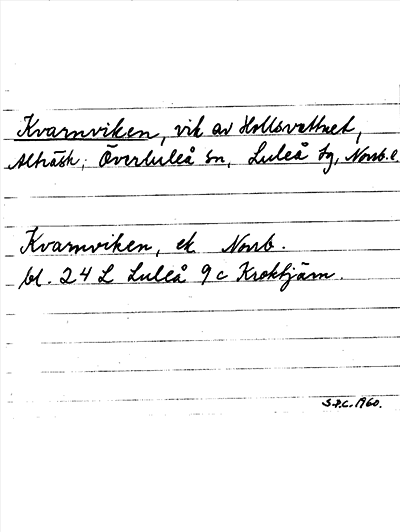 Kvarnviken, vik av Hollsvattnet,
Alträsk, Överluleå sn, Luleå tg, Norrb. l.
Kvarnviken, ek. Norrb.
bl. 24 L Luleå 9c Kroktjärn.
S.P.C. 1960.